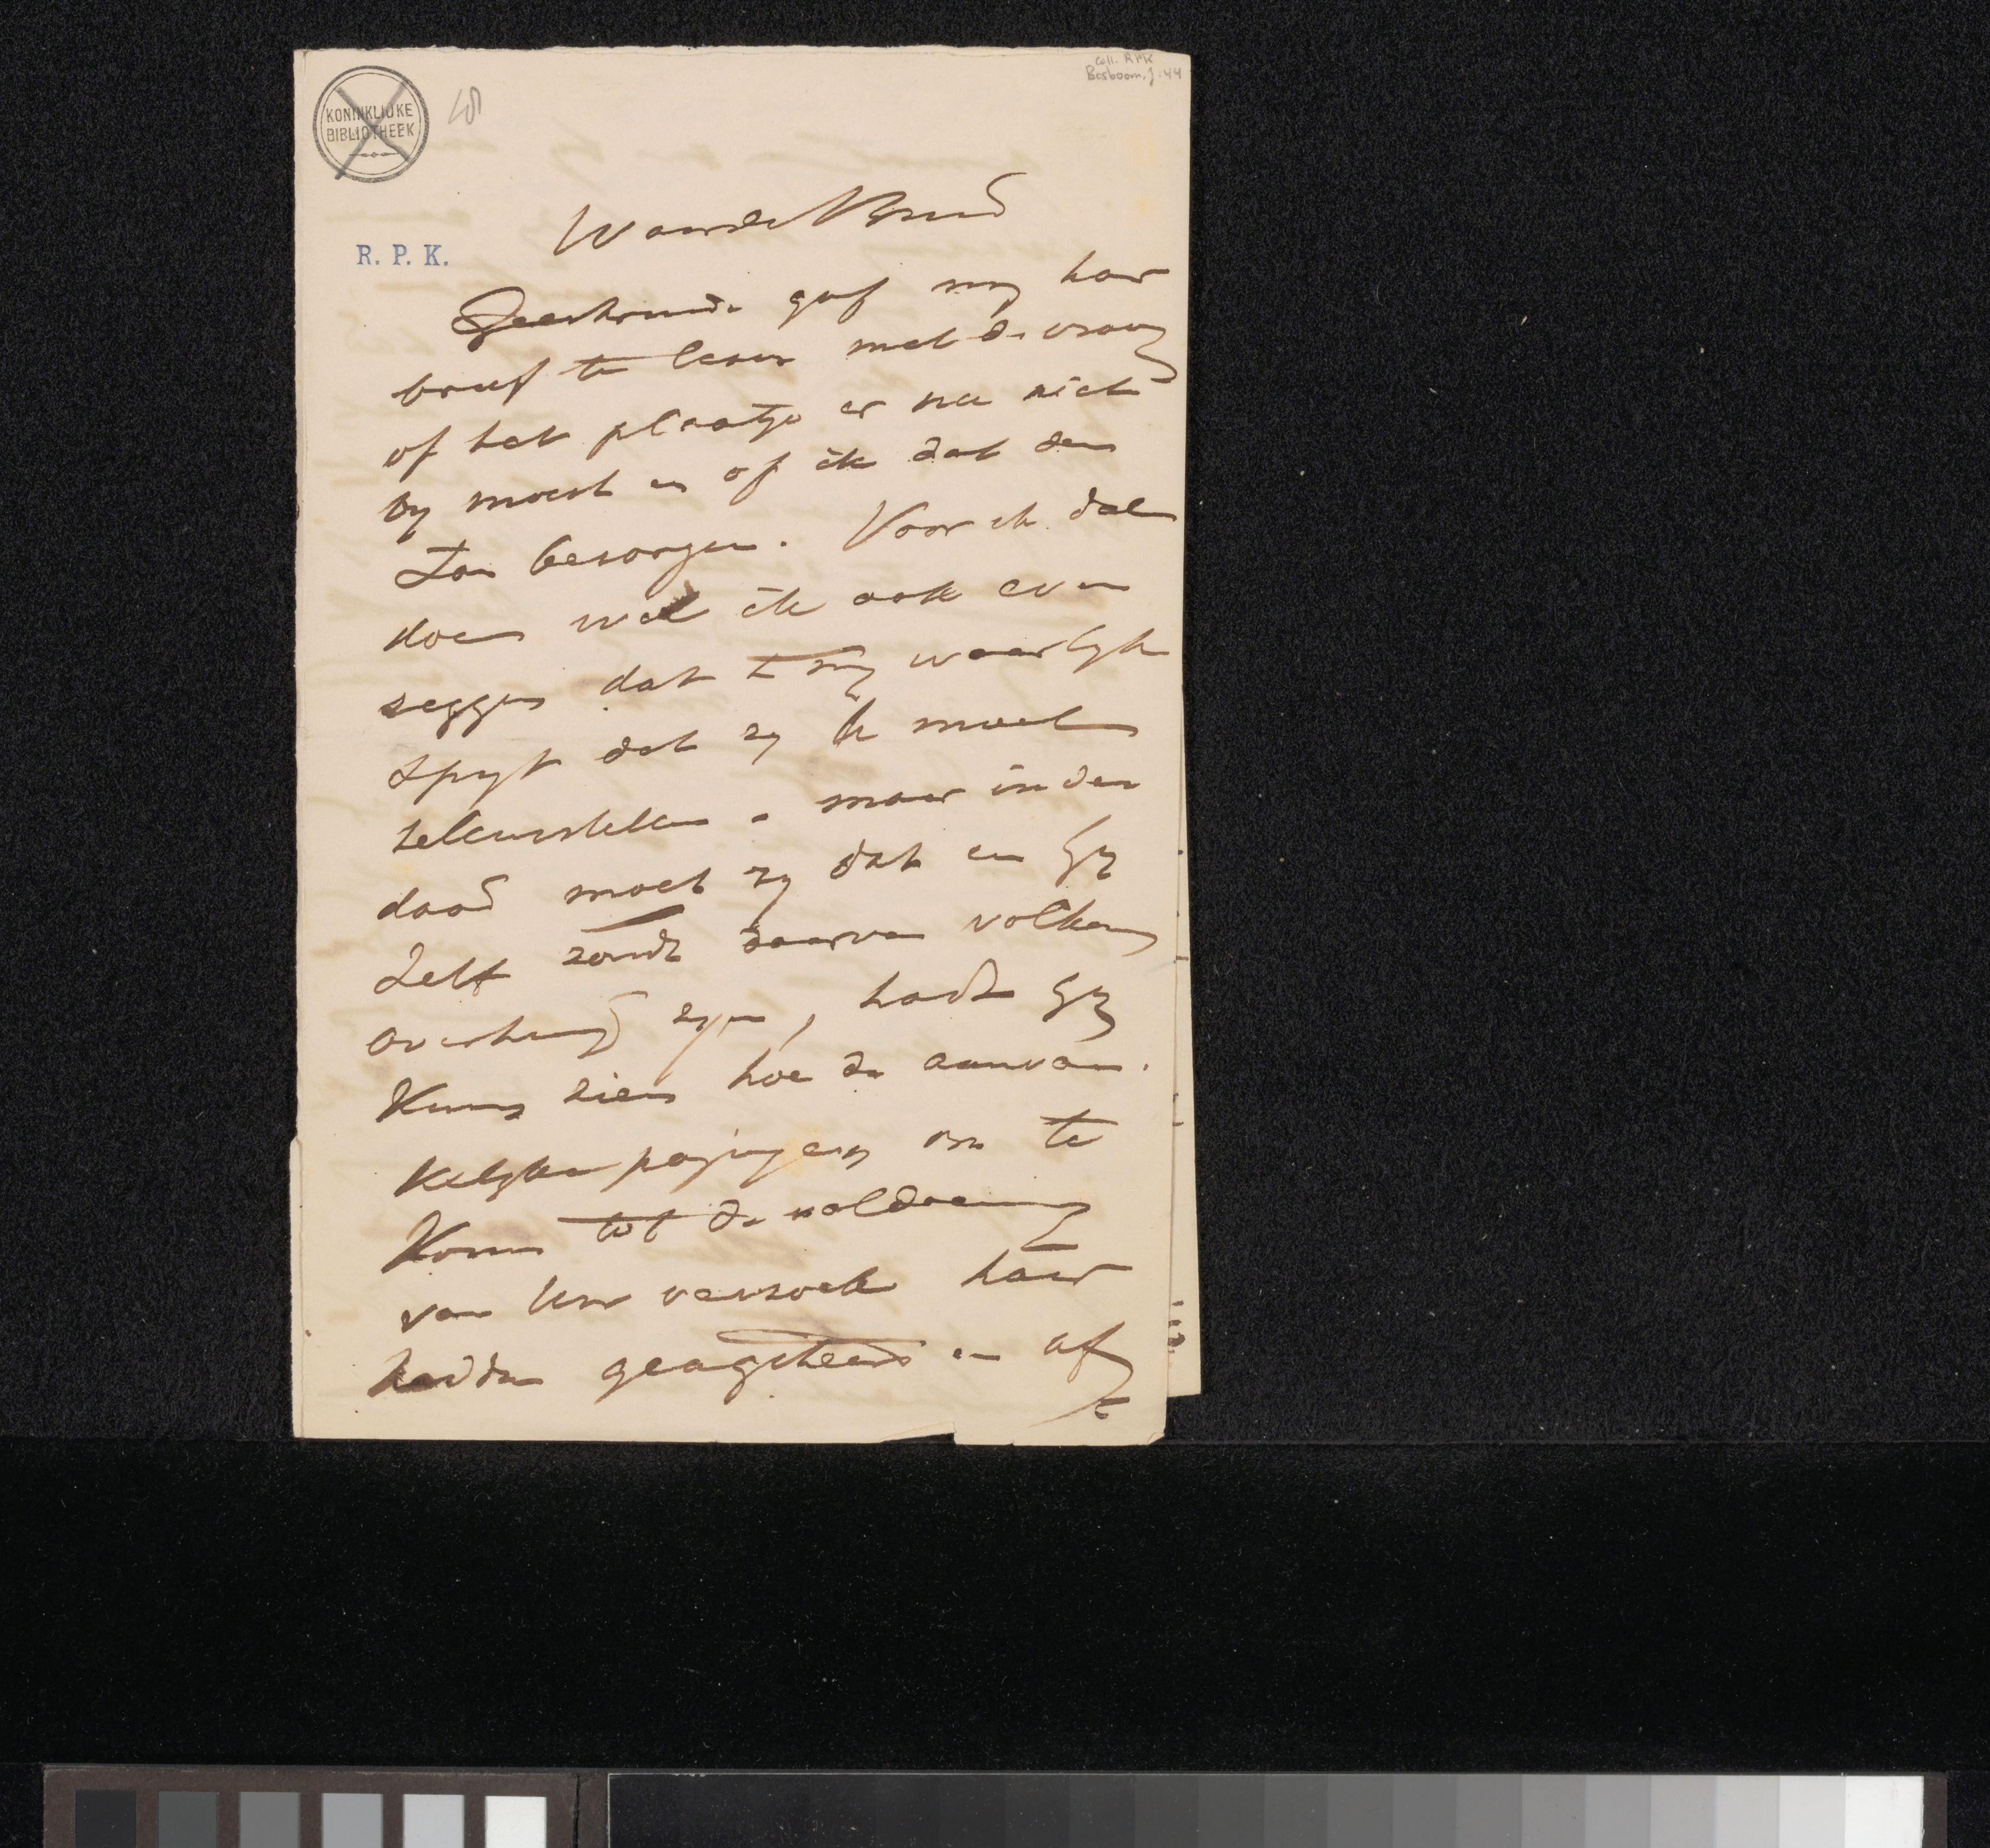 coll. RPK
Bosboom, J. 44
KONINKLIJKE
BIBLIOTHEEK
R. P. K.
Waarde Vriend
Geertruida gaf my haar
brief te lezen met de vraag
of het plaatje er nu niet
by moest en of ik dat dan
zou bezorgen. Voor ik dat
doe wil ik ook even
zeggen dat 't my waarlyk
spyt dat zy U moet
teleurstellen - maar inder
daad moet zy dat en Gy
zelf zoudt daarvan volkomen
overtuigd zyn, hadt Gy
kunnen zien hoe de aanvan-
kelyke pogingen om te
komen tot de voldoening
van Uw verzoek haar
hadden geagiteerd en af